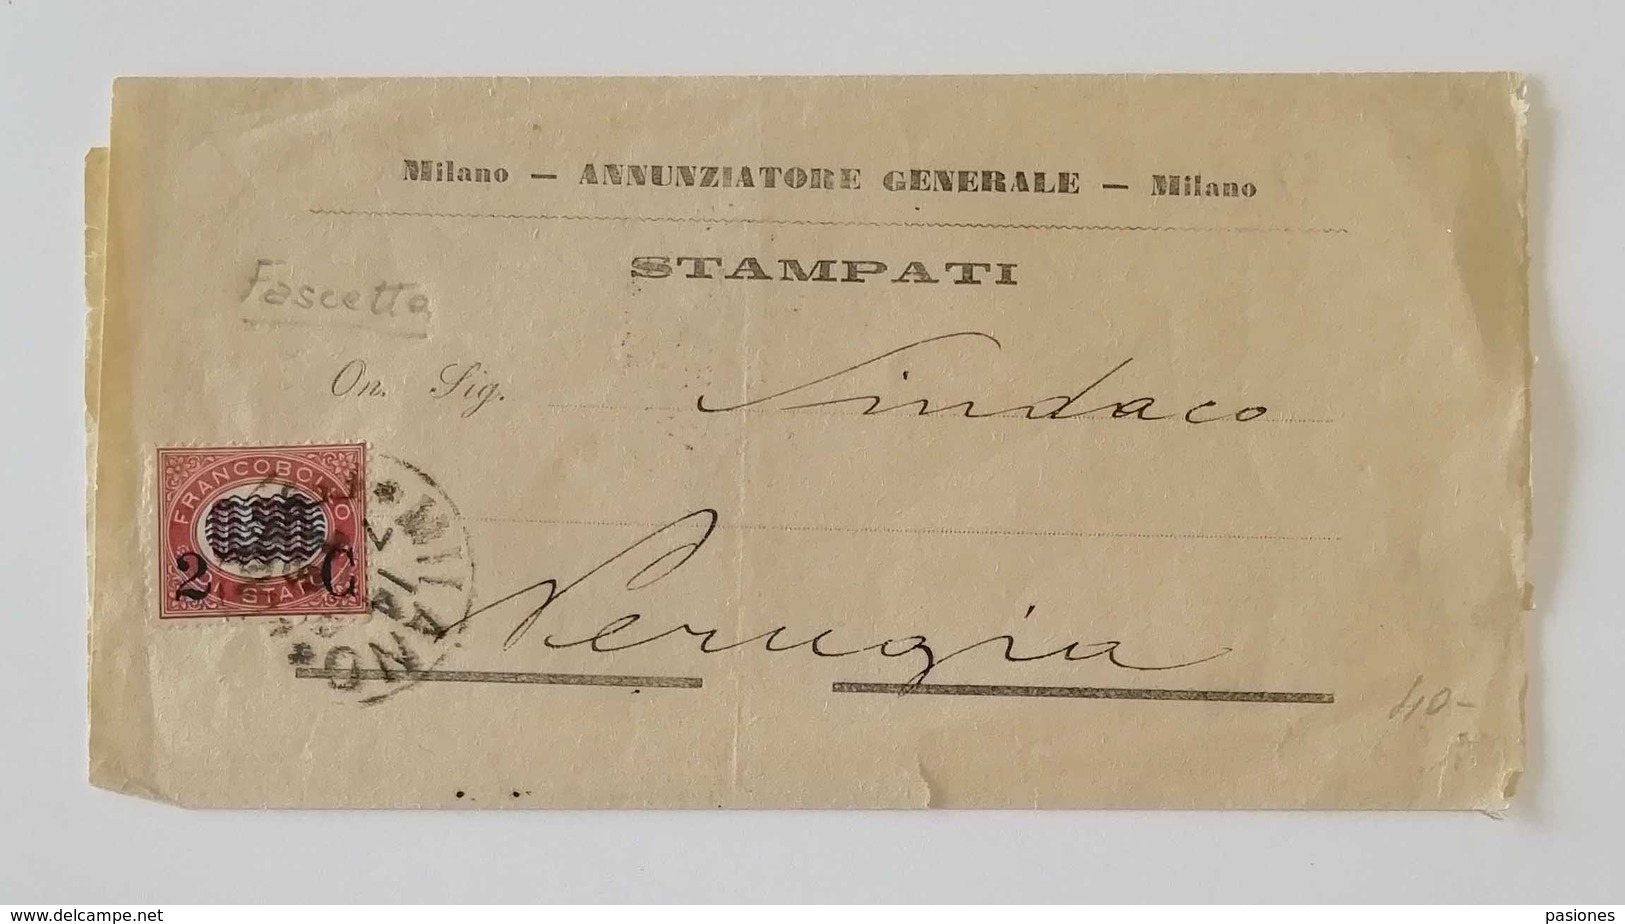 Milano — ANNUNZIATORE GENERALE — Milano
STAMPATI
Fascetta
On. Sig. Sindaco
FRANCOBOLLO
2 C
STATO
* MILANO *
Perugia
40-
pasiones
www.delcampe.net